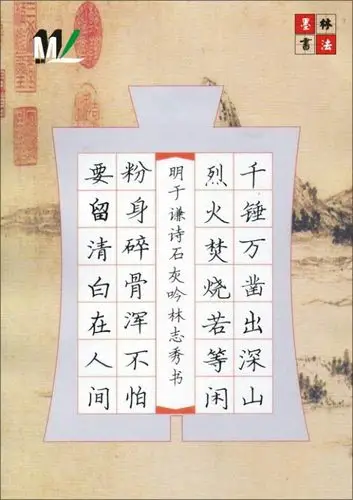 墨林
書法
千锤万凿出深山
烈火焚烧若等闲
明于谦诗石灰吟林志秀书
粉身碎骨浑不怕
要留清白在人间